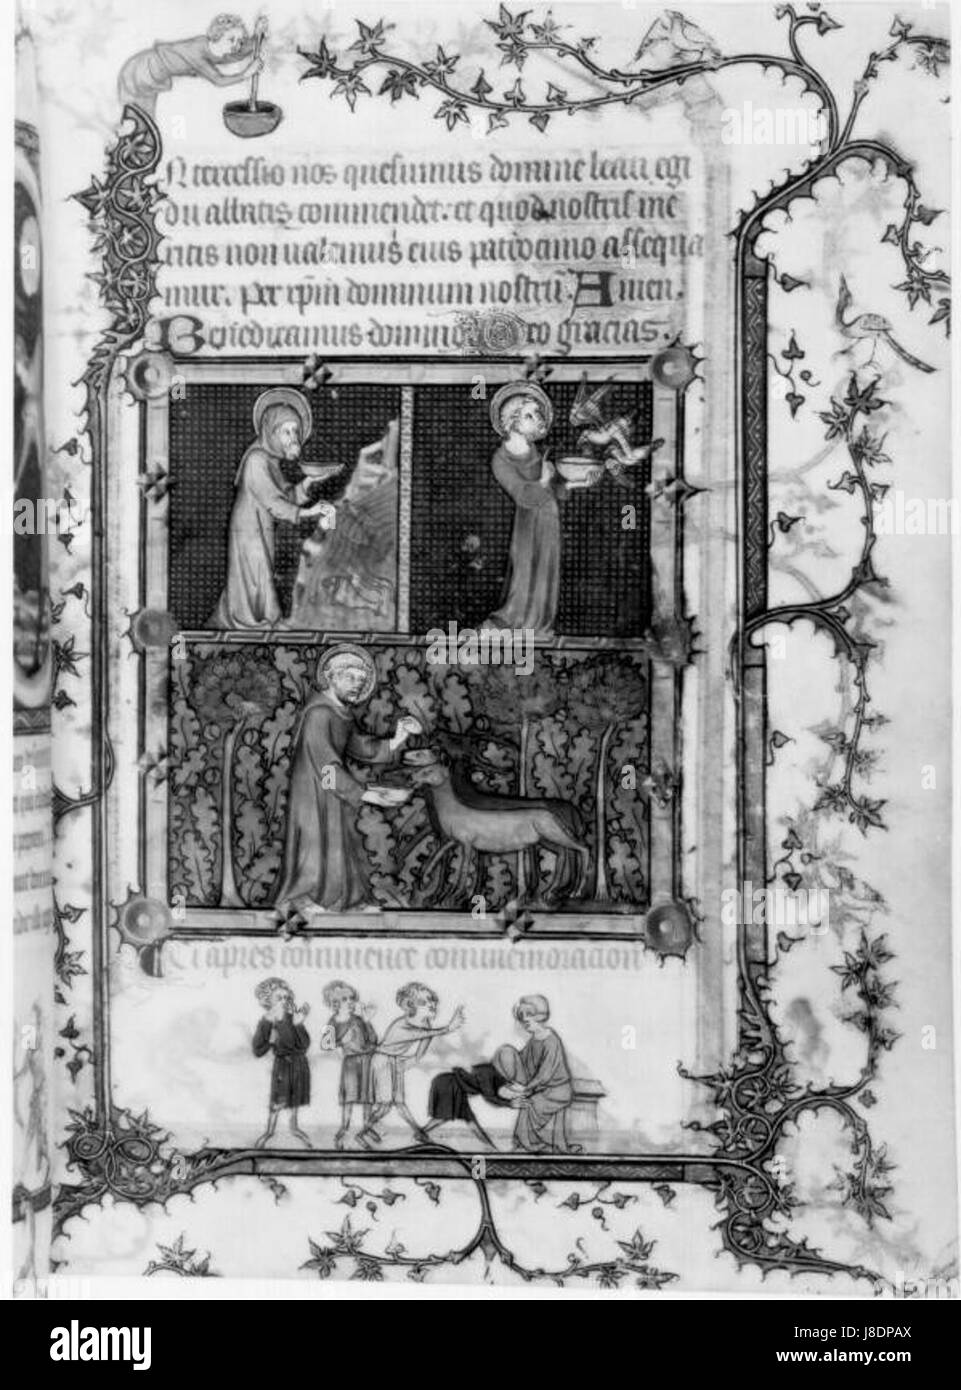 Ntercessio nos quesumus domine beati egi
dii abbatis commendet. et quod nostris me
ritis non ualemus eius patrocinio assequa
mur. per xpm dominum nostrum. Amen.
Benedicamus domino Deo gracias.
Ci apres commence commemoracion
alamy
alamy stock photo
Image ID: J8DPAX
www.alamy.com